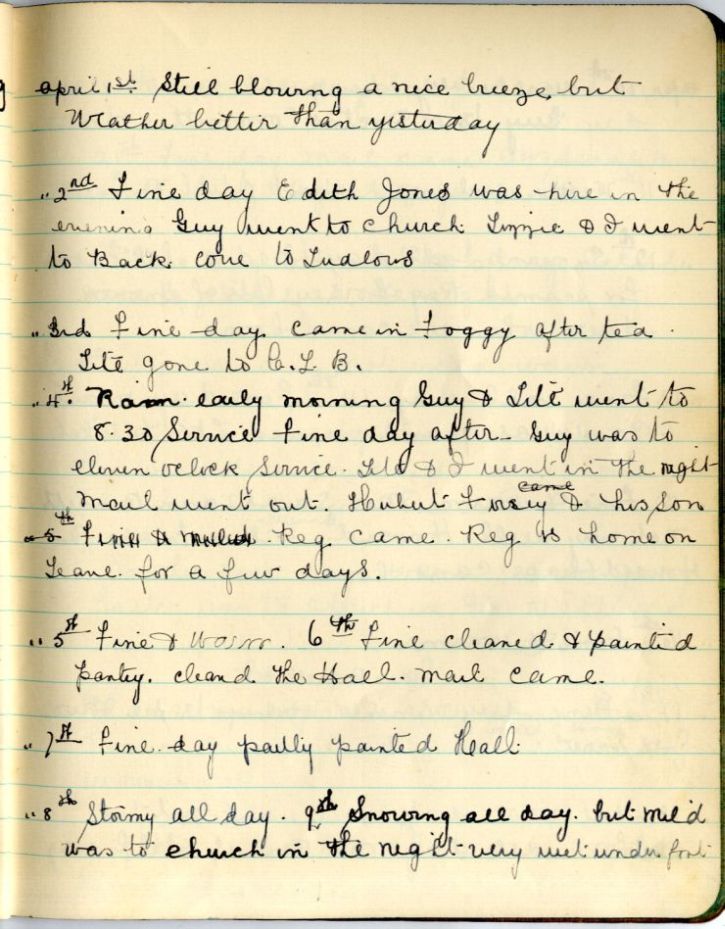 april 1st. Still blowing a nice breeze, but
Weather better than yesterday
" 2nd Fine day Edith Jones was here in the
evening Guy went to church Lizzie & I went
to Back cove to Ludlows
" 3rd Fine day. came in Foggy after tea.
Lite gone to C.L.B.
" 4th. Rain early morning Guy & Lite went to
8.30 Service Fine day after - Guy was to
eleven oclock Service. Lite & I went in the night
came
mail went out. Hubert & his Son
5th Fine & Reg came. Reg is home on
Leave for a few days.
" 5th Fine & Warm. 6th Fine cleaned & painted
pantry. cleand the Hall. mail came.
" 7th Fine day partly painted Hall
" 8th Stormy all day. 9th Snowing all day. but mild
was to church in the night very wet under foot